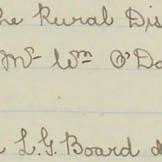 he Rural Dis
Mr Wm O'Do
L.G. Board